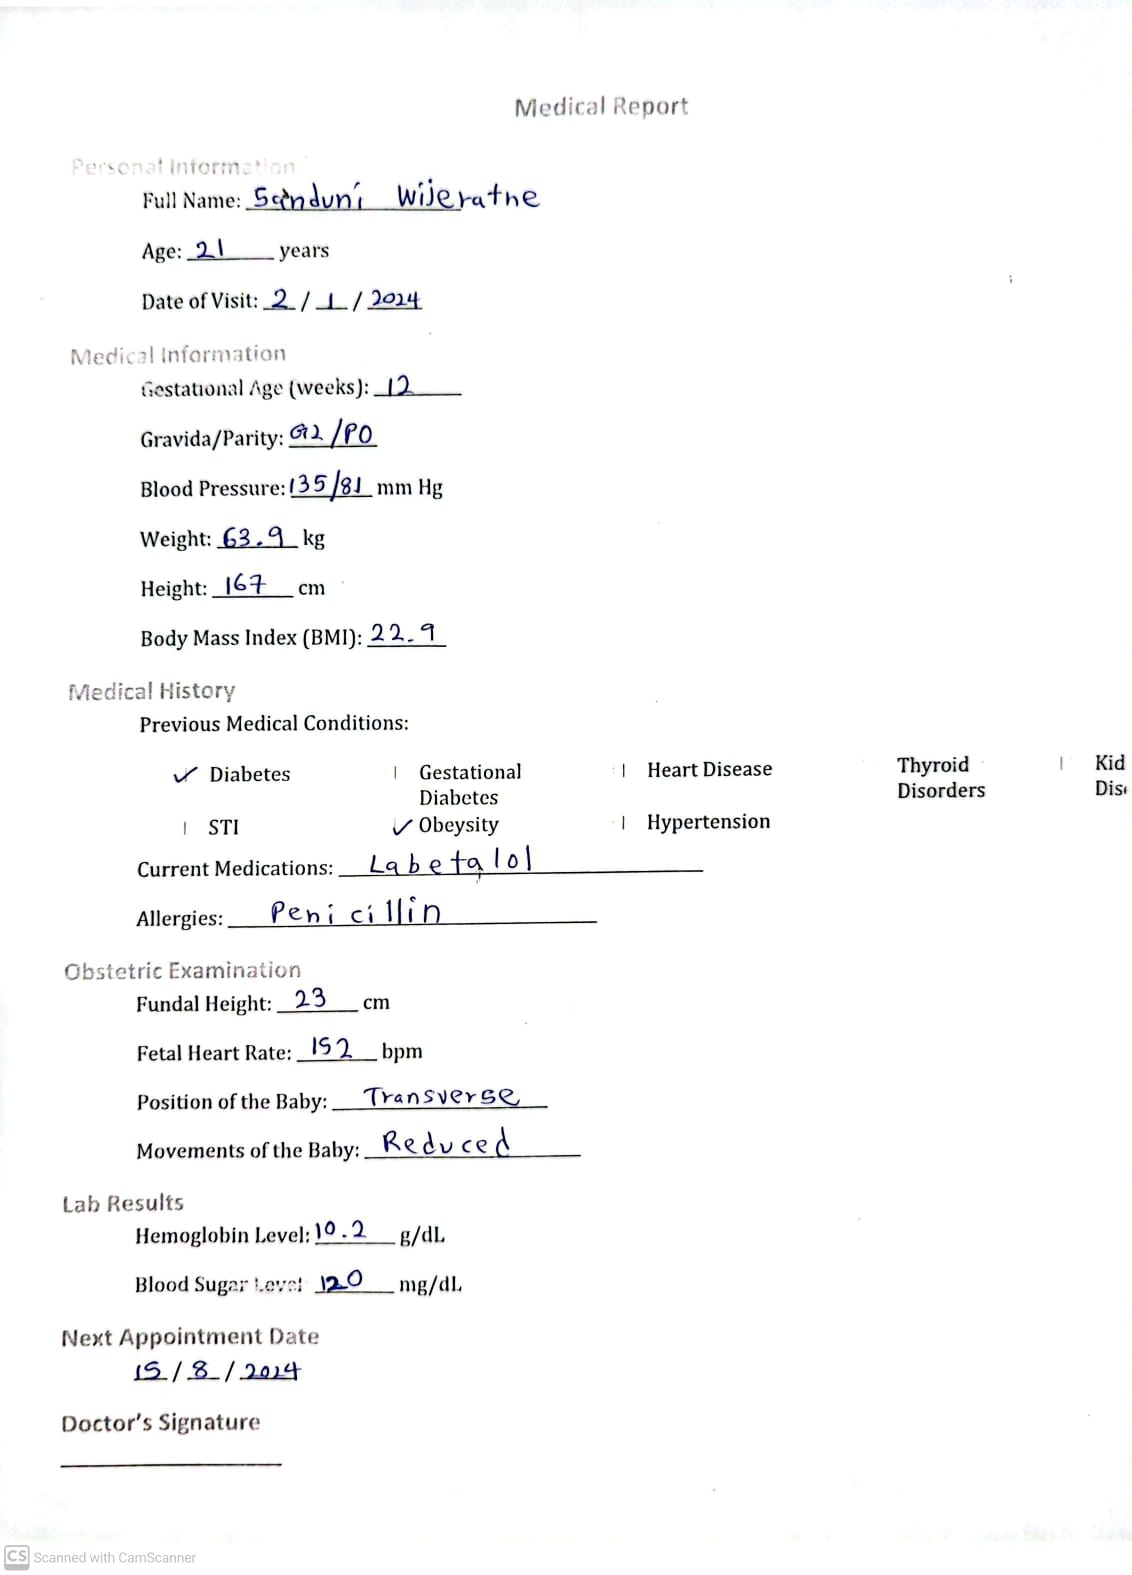 Medical Report
Personal Information
Full Name: Sanduni Wijerathe
Age: 21 years
Date of Visit: 2 / 1 / 2024
Medical Information
Gestational Age (weeks): 12
Gravida/Parity: G2/P0
Blood Pressure: 135/81 mm Hg
Weight: 63.9 kg
Height: 167 cm
Body Mass Index (BMI): 22.9
Medical History
Previous Medical Conditions:
✓ Diabetes | Gestational Diabetes | Heart Disease Thyroid Disorders | Kid Dis
| STI ✓ Obeysity | Hypertension
Current Medications: Labetalol
Allergies: Penicillin
Obstetric Examination
Fundal Height: 23 cm
Fetal Heart Rate: 152 bpm
Position of the Baby: Transverse
Movements of the Baby: Reduced
Lab Results
Hemoglobin Level: 10.2 g/dL
Blood Sugar Level 120 mg/dL
Next Appointment Date
15 / 8 / 2024
Doctor's Signature
CS Scanned with CamScanner